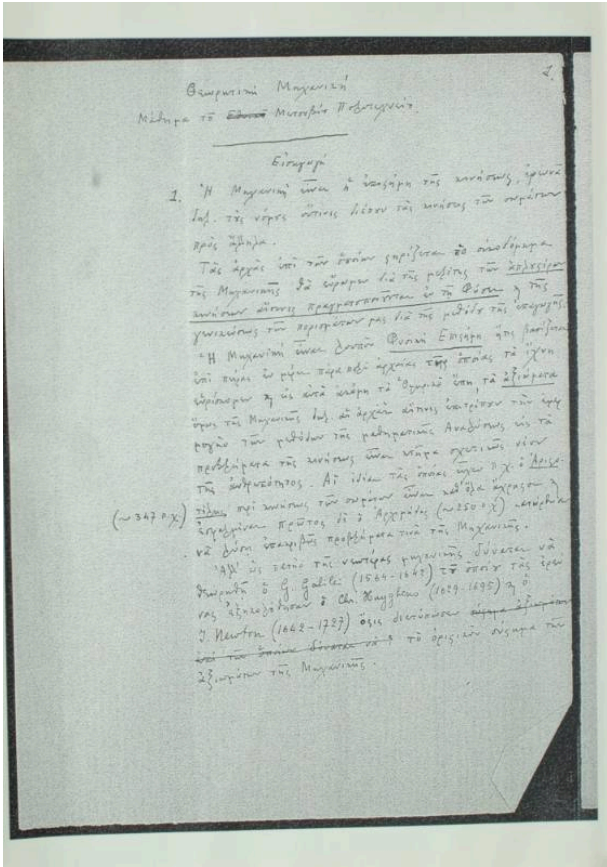 1.
Θεωρητική Μηχανική
Μάθημα τὸ Μετσόβιον Πολυτεχνεῖον.
Εἰσαγωγή
1. Ἡ Μηχανικὴ εἶναι ἡ ἐπιστήμη τῆς κινήσεως, ἐρευνᾷ
δηλ. τοὺς νόμους οἵτινες διέπουν τὰς κινήσεις τῶν σωμάτων
πρὸς ἄλληλα.
Τὰς ἀρχὰς ἐπὶ τῶν ὁποίων στηρίζεται τὸ οἰκοδόμημα
τῆς Μηχανικῆς θὰ εὕρωμεν διὰ τῆς μελέτης τῶν ἁπλουστέρων
κινήσεων αἵτινες πραγματοποιοῦνται ἐν τῇ Φύσει ϗ τῆς
γενικεύσεως τῶν πορισμάτων μας διὰ τῆς μεθόδου τῆς ἐπαγωγῆς.
Ἡ Μηχανικὴ εἶναι λοιπὸν Φυσικὴ Ἐπιστήμη ἥτις βασίζεται
ἐπὶ πείρας ἐν μέρει πάρα πολὺ ἀρχαίας τῆς ὁποίας τὰ ἴχνη
εὑρίσκομεν ϗ εἰς αὐτὰ ἀκόμη τὰ Ὁμηρικὰ ἔπη, τὰ ἀξιώματα
ὅμως τῆς Μηχανικῆς δηλ. αἱ ἀρχαὶ αἵτινες ἐπιτρέπουν τὴν ἐφαρ
μογὴν τῶν μεθόδων τῆς μαθηματικῆς Ἀναλύσεως εἰς τὰ
προβλήματα τῆς κινήσεως εἶναι κτῆμα σχετικῶς νέον
τῆς ἀνθρωπότητος. Αἱ ἰδέαι τὰς ὁποίας εἶχεν π.χ. ὁ Ἀριστο-
(~ 347 π.χ.) τέλης περὶ κινήσεως τῶν σωμάτων εἶναι καθ' ὅλα ἄχρηστοι ϗ
ἐσφαλμέναι πρῶτος δὲ ὁ Ἀρχιμήδης (~ 250 π.χ) κατώρθωσε
νὰ λύσῃ ἐπακριβῶς προβλήματα τινὰ τῆς Μηχανικῆς.
Ἀλλ' ὡς πατὴρ τῆς νεωτέρας μηχανικῆς δύναται νὰ
θεωρηθῇ ὁ G. Galilei (1564-1642) τοῦ ὁποίου τὰς ἐρεύ
νας ἐξηκολούθησαν ὁ Chr. Huyghens (1629-1695) ϗ ὁ
I. Newton (1642-1727) ὅστις διετύπωσεν
τὸ ὁριστικὸν σύστημα τῶν
ἀξιωμάτων τῆς Μηχανικῆς.